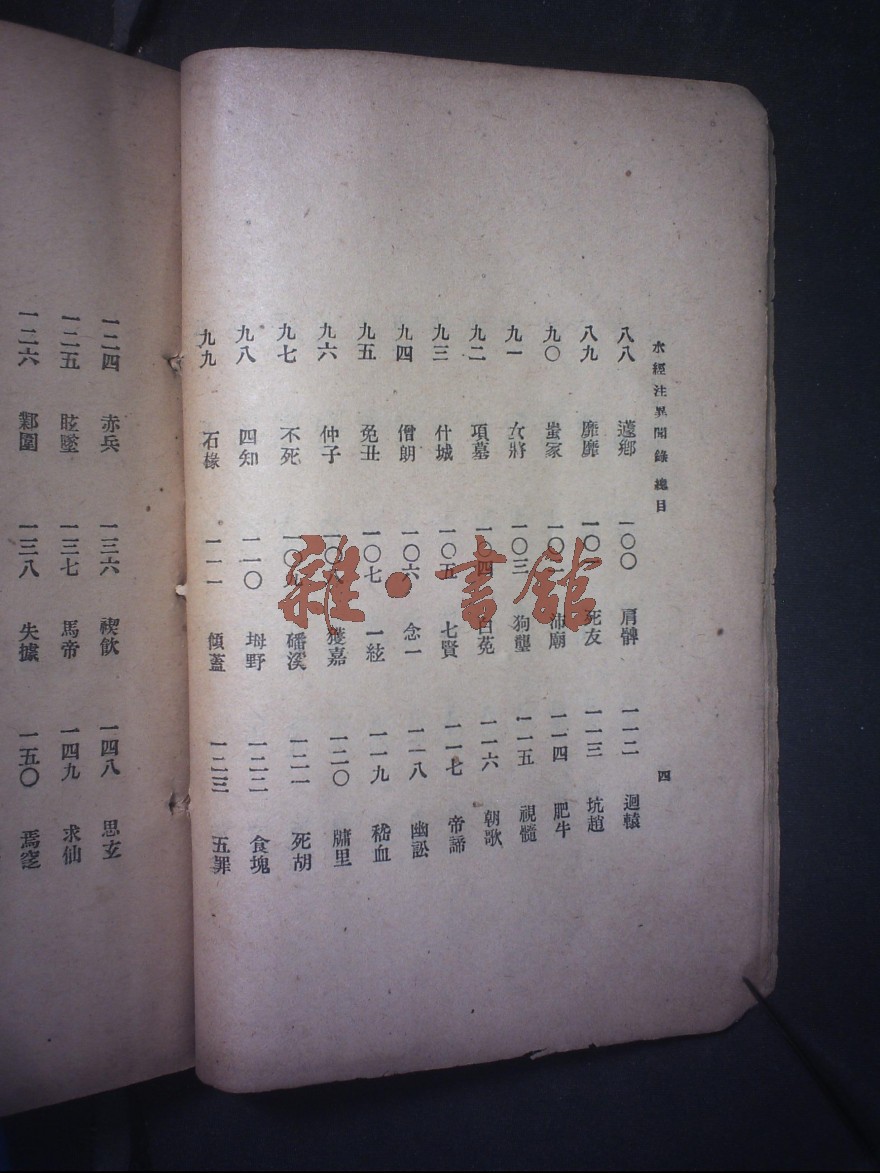 水經注異聞錄 總目 四
八八 蘧鄉 一〇〇 肩髀 一一二 迴轅
八九 靡靡 一〇一 死友 一一三 坑趙
九〇 蚩冢 一〇二 沛廟 一一四 肥牛
九一 女將 一〇三 狗壟 一一五 視髓
九二 項墓 一〇四 白兔 一一六 朝歌
九三 什城 一〇五 七賢 一一七 帝諦
九四 僧朗 一〇六 念一 一一八 幽訟
九五 免丑 一〇七 一絃 一一九 嵇血
九六 仲子 一〇八 獲嘉 一二〇 牖里
九七 不死 一〇九 磻溪 一二一 死胡
九八 四知 一一〇 坶野 一二二 食塊
九九 石椽 一一一 傾蓋 一二三 五罪
一二四 赤兵 一三六 禊飲 一四八 思玄
一二五 眩墜 一三七 馬帝 一四九 求仙
一二六 鄴圍 一三八 失據 一五〇
雜·書館